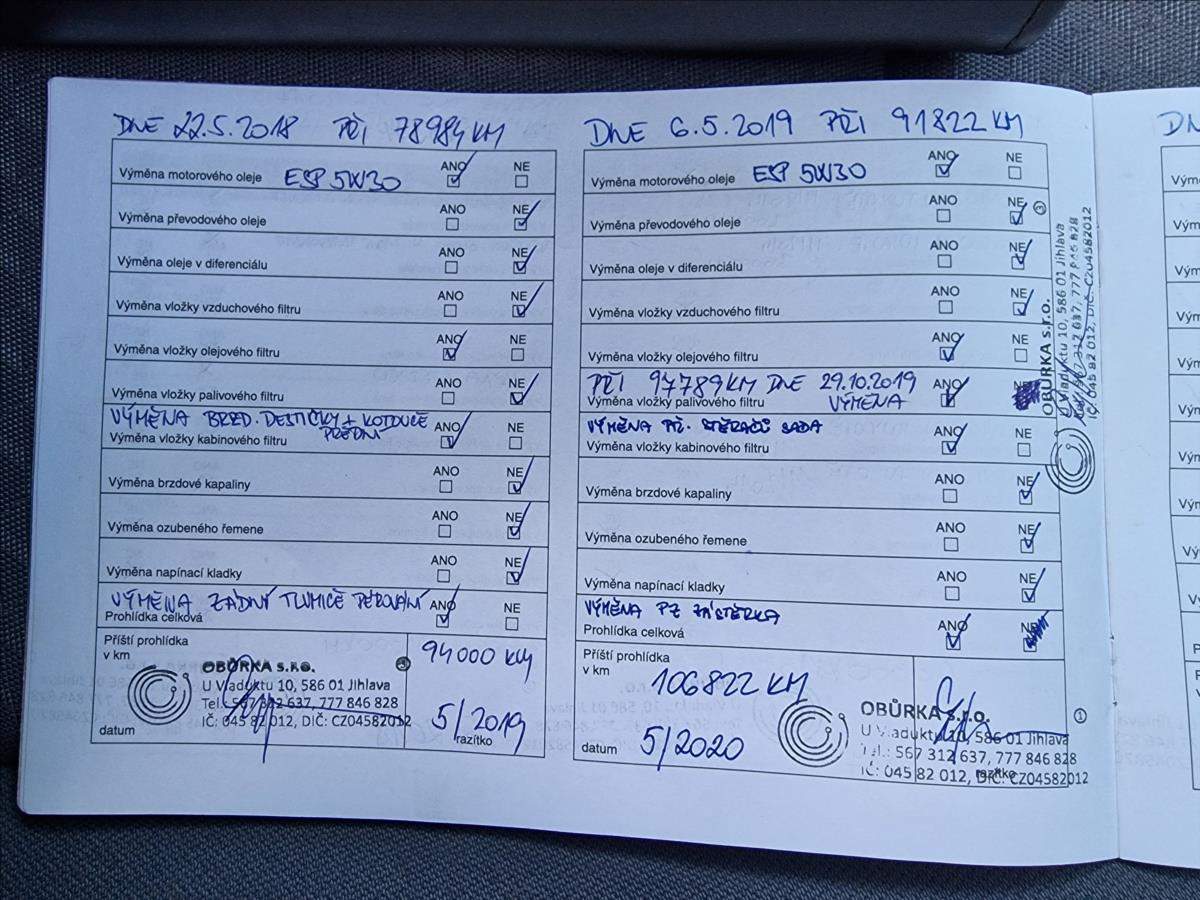 DNE 22.5.2018 PŘI 78984 KM
Výměna motorového oleje ESP 5W30 ANO NE
Výměna převodového oleje ANO NE
Výměna oleje v diferenciálu ANO NE
Výměna vložky vzduchového filtru ANO NE
Výměna vložky olejového filtru ANO NE
Výměna vložky palivového filtru ANO NE
VÝMĚNA BRZD. DESTIČKY + KOTOUČE
PŘEDNÍ
Výměna vložky kabinového filtru ANO NE
Výměna brzdové kapaliny ANO NE
Výměna ozubeného řemene ANO NE
Výměna napínací kladky ANO NE
VÝMĚNA ZADNÍ TLUMIČE PÉROVÁNÍ
Prohlídka celková ANO NE
Příští prohlídka
v km 94000 KM
OBŮRKA s.r.o. 3
U Viaduktu 10, 586 01 Jihlava
Tel.: 567 312 637, 777 846 828
IČ: 045 82 012, DIČ: CZ04582012
datum 5/2019 razítko
DNE 6.5.2019 PŘI 91822 KM
Výměna motorového oleje ESP 5W30 ANO NE
Výměna převodového oleje ANO NE
Výměna oleje v diferenciálu ANO NE
Výměna vložky vzduchového filtru ANO NE
Výměna vložky olejového filtru ANO NE
PŘI 97789 KM DNE 29.10.2019
Výměna vložky palivového filtru VÝMĚNA ANO NE
VÝMĚNA PŘ. STĚRAČŮ SADA
Výměna vložky kabinového filtru ANO NE
Výměna brzdové kapaliny ANO NE
Výměna ozubeného řemene ANO NE
Výměna napínací kladky ANO NE
VÝMĚNA PZ ZÁSTĚRKA
Prohlídka celková ANO NE
Příští prohlídka
v km 106822 KM
OBŮRKA s.r.o. 1
U Viaduktu 10, 586 01 Jihlava
Tel.: 567 312 637, 777 846 828
IČ: 045 82 012, DIČ: CZ04582012
datum 5/2020 razítko
OBŮRKA s.r.o. 3
U Viaduktu 10, 586 01 Jihlava
Tel.: 567 312 637, 777 846 828
IČ: 045 82 012, DIČ: CZ04582012